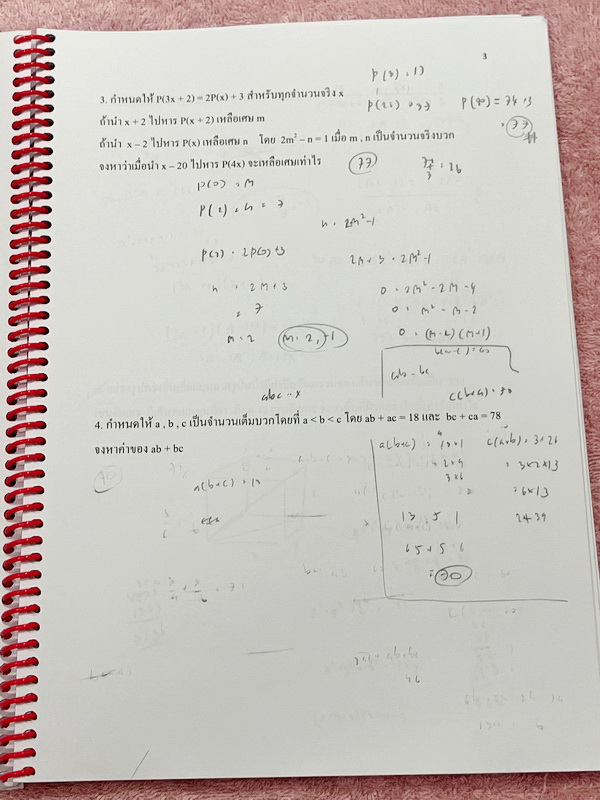 3
P(8) = 13
3. กำหนดให้ P(3x + 2) = 2P(x) + 3 สำหรับทุกจำนวนจริง x
P(80) = 74 + 3
ถ้านำ x + 2 ไปหาร P(x + 2) เหลือเศษ m
= 77
ถ้านำ x – 2 ไปหาร P(x) เหลือเศษ n โดย 2m² – n = 1 เมื่อ m , n เป็นจำนวนจริงบวก
จงหาว่าเมื่อนำ x – 20 ไปหาร P(4x) จะเหลือเศษเท่าไร
77
P(0) = M
P(2) = n = 7
n = 2M² - 1
P(2) = 2P(0) + 3
2M + 3 = 2M² - 1
n = 2M + 3
0 = 2M² - 2M - 4
= 7
0 = M² - M - 2
M = 2
M = 2, -1
0 = (M-2)(M+1)
ab - bc
c(b+a) = 78
4. กำหนดให้ a , b , c เป็นจำนวนเต็มบวกโดยที่ a < b < c โดย ab + ac = 18 และ bc + ca = 78
จงหาค่าของ ab + bc
a(b+c) = 18×1
c(a+b) = 3×26
a(b+c) = 18
2×9
= 3×2×13
3×6
= 6×13
13 5 1
2 39
65 + 5
= 70